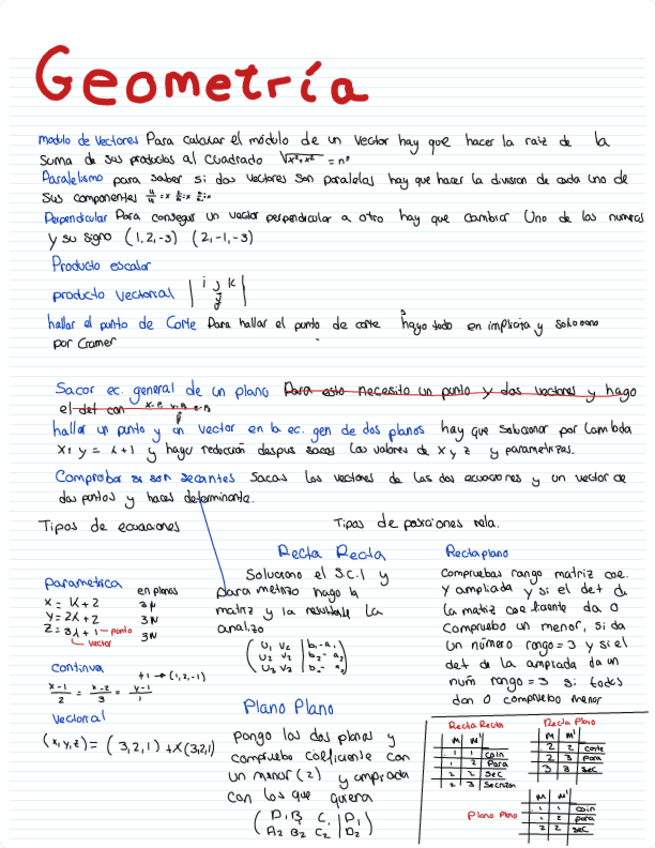 Geometría
modulo de Vectores Para calcular el módulo de un Vector hay que hacer la raiz de la
suma de sus productos al cuadrado √x²+x² = nº
Paralelismo para saber si dos vectores son paralelos hay que hacer la division de cada uno de
sus componentes
Perpendicular Para conseguir un vector perpendicular a otro hay que cambiar Uno de los numeros
y su signo (1,2,-3) (2,-1,-3)
Producto escalar
producto vectorial | i j k |
hallar el punto de Corte Para hallar el punto de corte hago todo en implicita y soluciono
por Cramer
Sacar ec. general de un plano Para esto necesito un punto y dos vectores y hago
el det con
hallar un punto y un vector en la ec. gen de dos planos hay que solucionar por lambda
x1 y = λ+1 y hager reduccion despus sacas los valores de x y z y parametrizas.
Comprobar si son secantes Sacas los vectores de las dos ecuaciones y un vector de
dos puntos y haces determinante.
Tipos de ecuaciones
Tipos de posiciones rela.
Parametrica en planos
x = λ+2
y = 2λ+2 3λ
z = 3λ+1 – punto 3λ
vector
Continua
x-1/2 = x-2/3 = y-1/1 +1 → (1,2,-1)
Vectorial
(x,y,z) = (3,2,1) +λ(3,2,1)
Recta Recta
Soluciono el S.C.I y
para metrizo hago la
matriz y la resultante la
analizo
U1 V2 | b1-a1
U2 V2 | b2-a2
U3 V2 | b3-a3
Plano Plano
pongo los dos planos y
compruebo coeficiente con
un menor (2) y ampliada
con los que quiera
A2 B2 C2 | D2
Recta plano
Compruebas rango matriz coe.
y ampliada y si el det de
la matriz coe ficiente da 0
Compruebo un menor, si da
un número rango = 3 y si el
det de la ampliada da un
num rango = 3 si todos
dan 0 compruebo menor
Recta Recta
M M'
1 1 coin
1 2 Para
2 2 sec
2 3
Recta Plano
M M'
2 2 conte
2 3 para
3 3 sec
Plano Plano
M M'
1 1 coin
1 2 para
2 2 sec